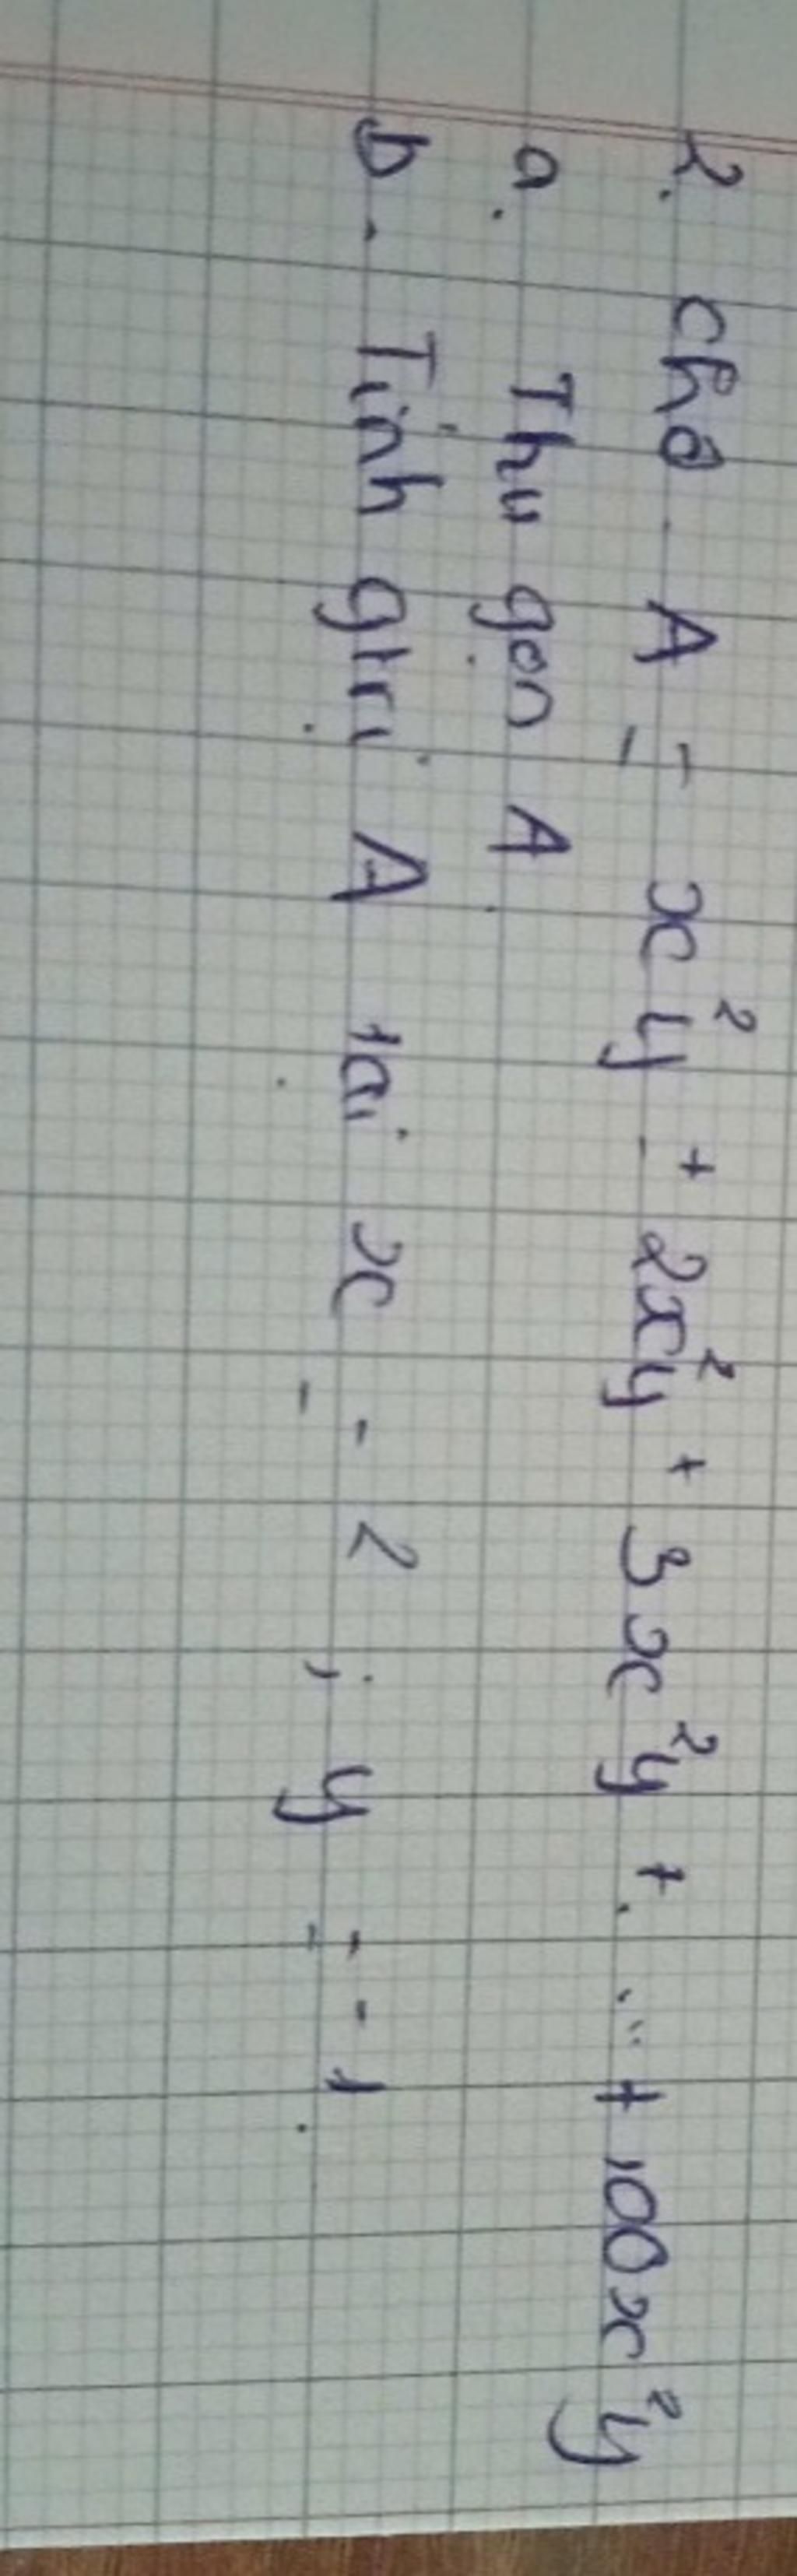 2. Cho A = x²y + 2x²y + 3x²y + ... + 100x²y
a. Thu gọn A.
b. Tính gtrị A tại x = 2 ; y = -1.